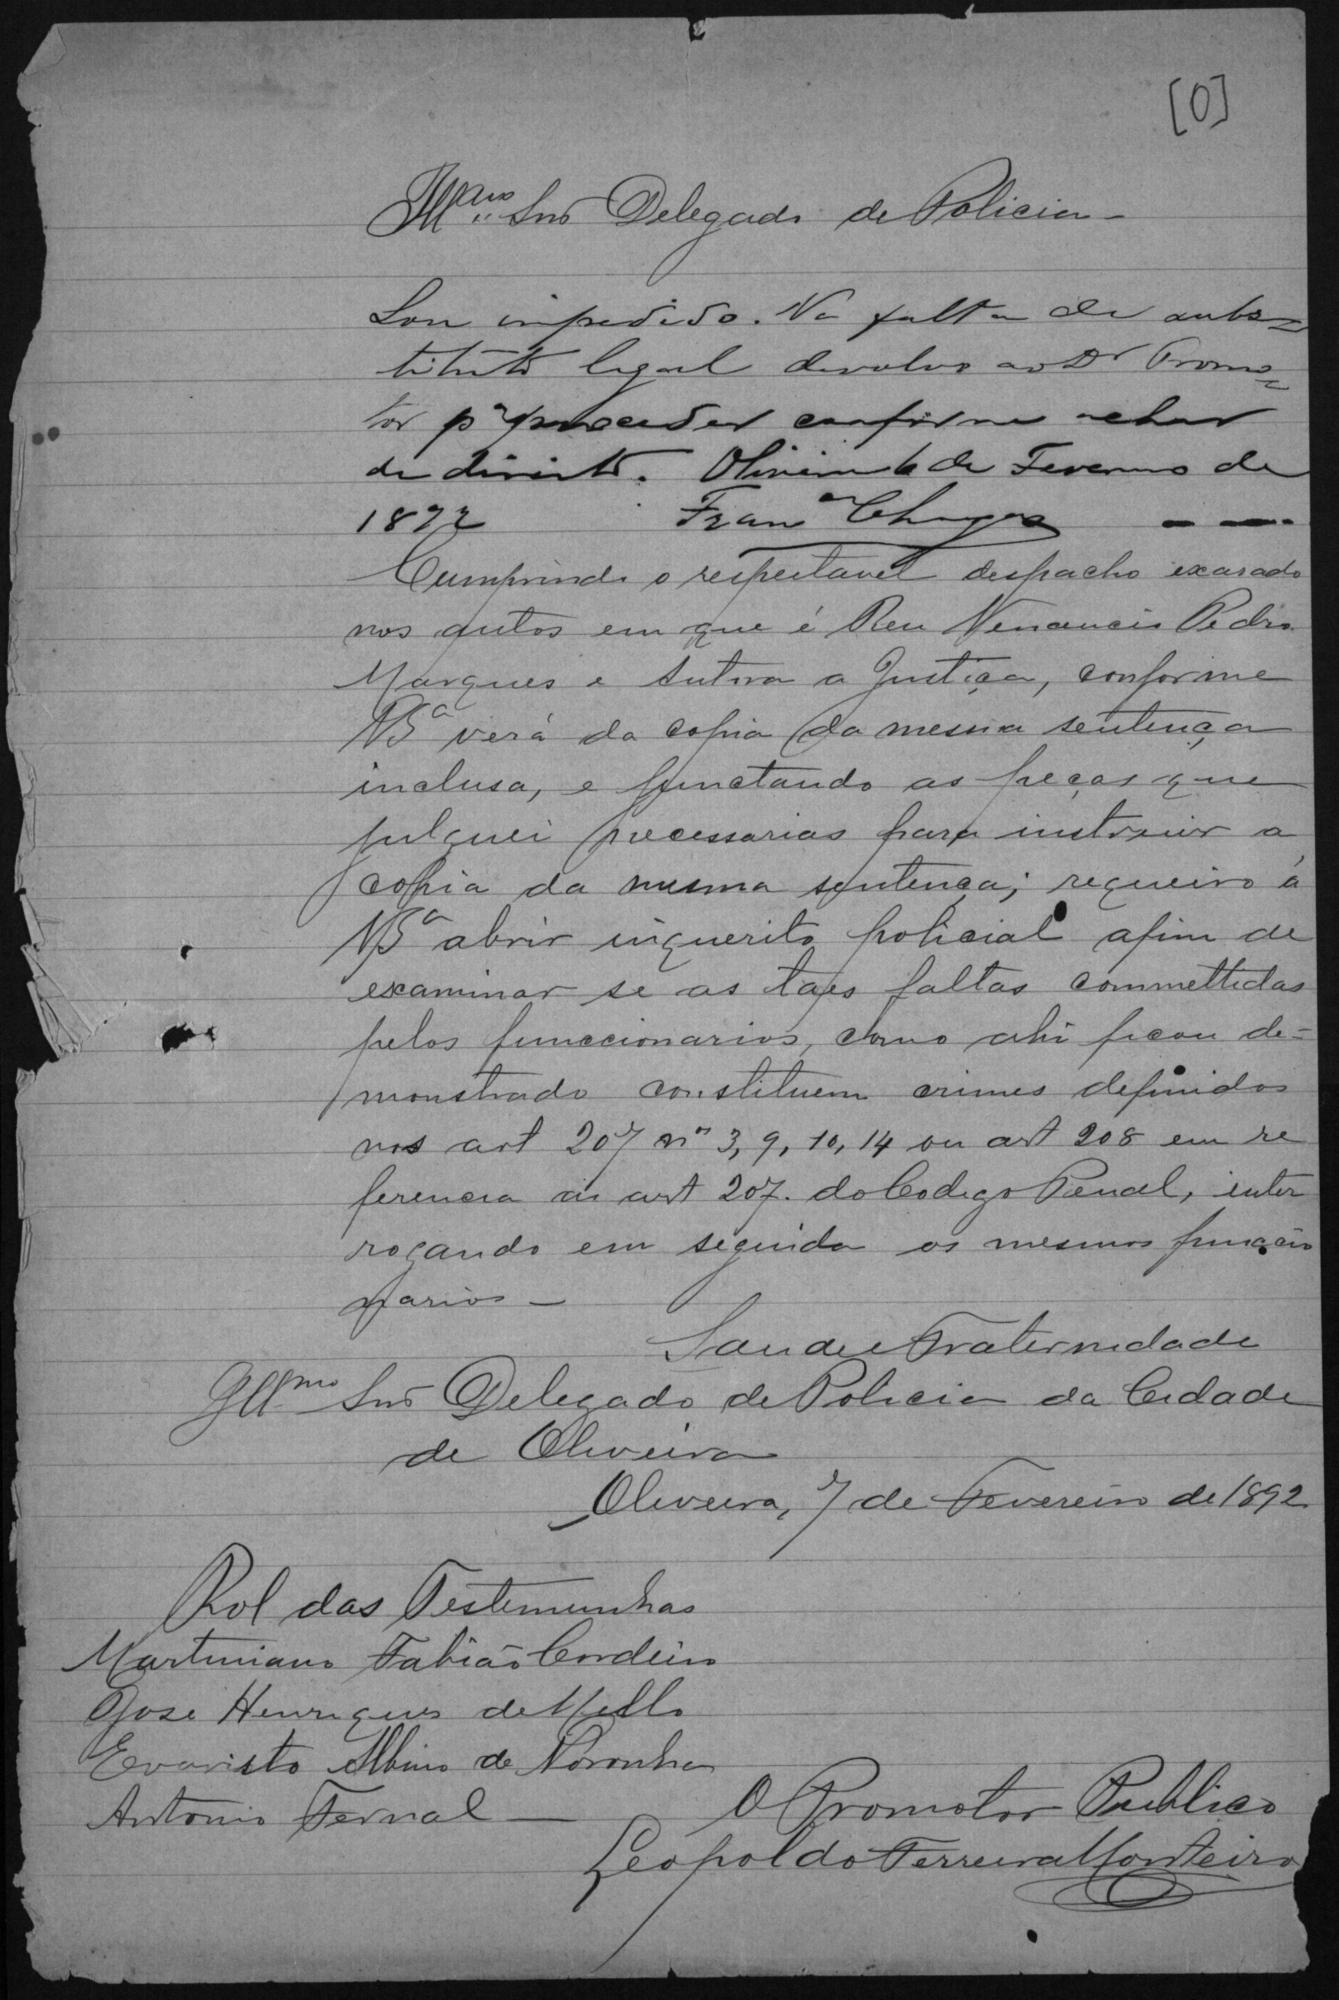 [0]
Illmo Snr Delegado de Policia –
Sou impedido. Na falta de subs=
tituto legal devolvo ao Dr Promo=
tor pa proceder conforme achar
de direito. Oliveira 6 de Fevereiro de
1892 Franco Chagas
Cumprindo o respeitavel despacho exarado
nos autos em que é Reu Venancio Pedro
Marques e Autora a Justiça, conforme
VSa verá da copia da mesma sentença
inclusa, e junctando as peças que
julguei necessarias para instruir a
copia da mesma sentença; requeiro á
VSa abrir inquerito policial afim de
examinar se as taes faltas commettidas
pelos funccionarios, como ahi ficou de=
monstrado constituem crimes definidos
nos art 207 nos 3, 9, 10, 14 ou art 208 em re
ferencia ao art 207. do Codigo Penal, inter
rogando em seguida os mesmos funccio
narios –
Saude e Fraternidade
Illmo Snr Delegado de Policia da Cidade
de Oliveira
Oliveira, 7 de Fevereiro de 1892
Rol das Testemunhas
Martiniano Fabião Cordeiro
Jose Henriques de Mello
Evaristo Albino de Noronha
Antonio Ferval –
O Promotor Publico
Leopoldo Ferreira Monteiro